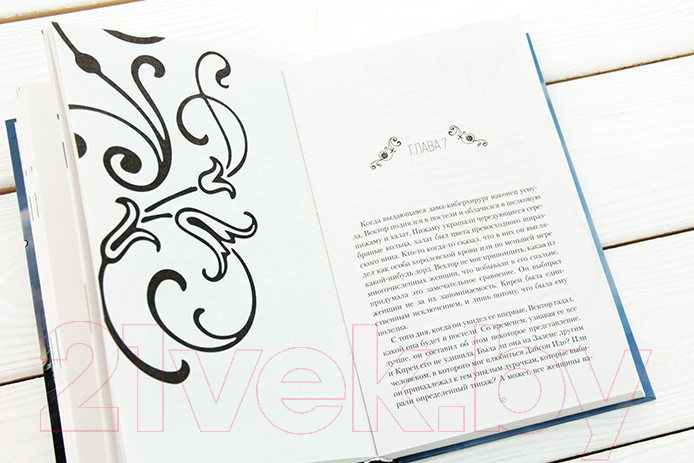 ГЛАВА 7
Когда выдающаяся дама-киберхирург наконец усну-
ла, Вектор поднялся в постели и облачился в шелковую
пижаму и халат. Пижаму украшали чередующиеся сере-
бряные кольца, халат был цвета превосходного ширал-
ского вина. Кто-то когда-то сказал, что в них он выгля-
дел как особа королевской крови или по меньшей мере
какой-нибудь лорд. Вектор не мог припомнить, какая из
многочисленных женщин, что побывали в его спальне,
придумала это замечательное сравнение. Он выбирал
женщин не за их запоминаемость. Кирей был един-
ственным исключением, и лишь потому, что была ему
полезна.
С того дня, когда он увидел ее впервые, Вектор гадал,
какой она будет в постели. Со временем, узнавая ее все
лучше, он составил об этом некоторое представление,
и Кирей его не удивила. Была ли она на Залеме другим
человеком, в которого мог влюбиться Дайсон Идо? Или
он принадлежал к тем унылым дурочкам, которые выби-
рали определенный типаж? А может, все женщины на-
21vek.by